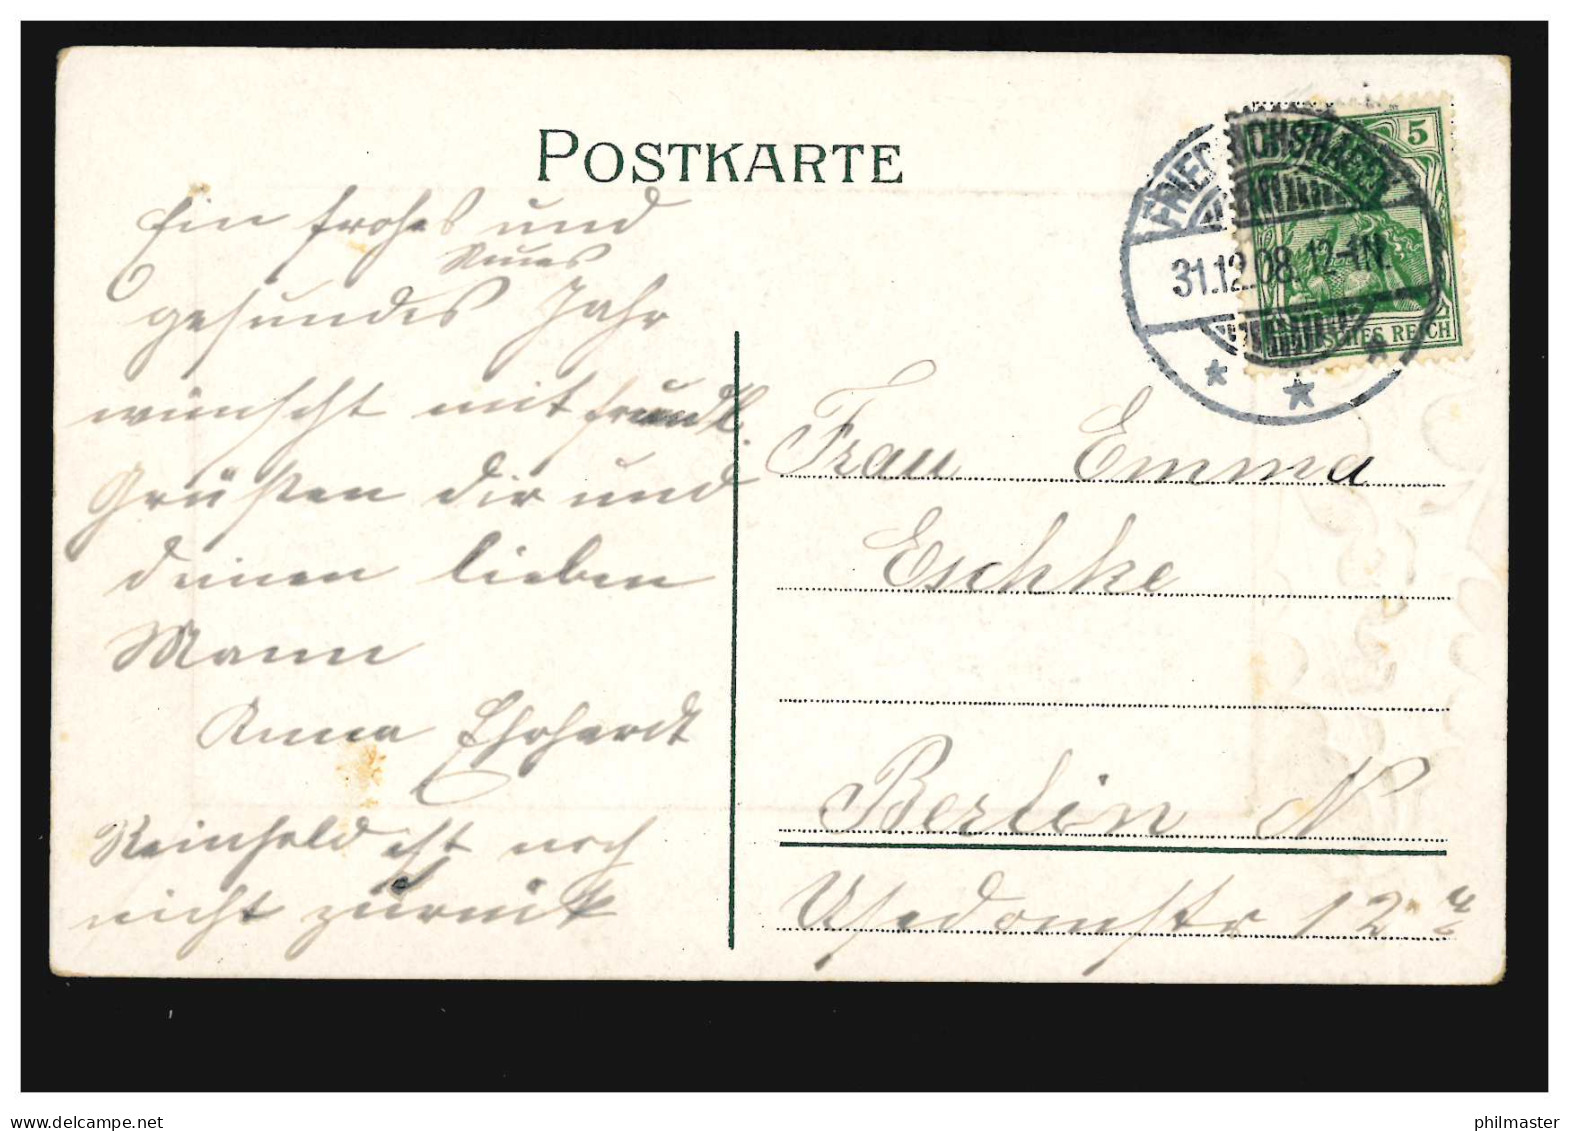 POSTKARTE
Ein frohes und
Neues
gesundes Jahr
wünscht mit freundl.
Grüßen dir und
deinen lieben
Mann
Anna Ehrhardt
Reinhold ist noch
nicht zurück
5
DEUTSCHES REICH
31.12.08. 12-1N.
Frau Emma
Eschke
Berlin N
Usedomstr 12
delcampe.net
philmaster